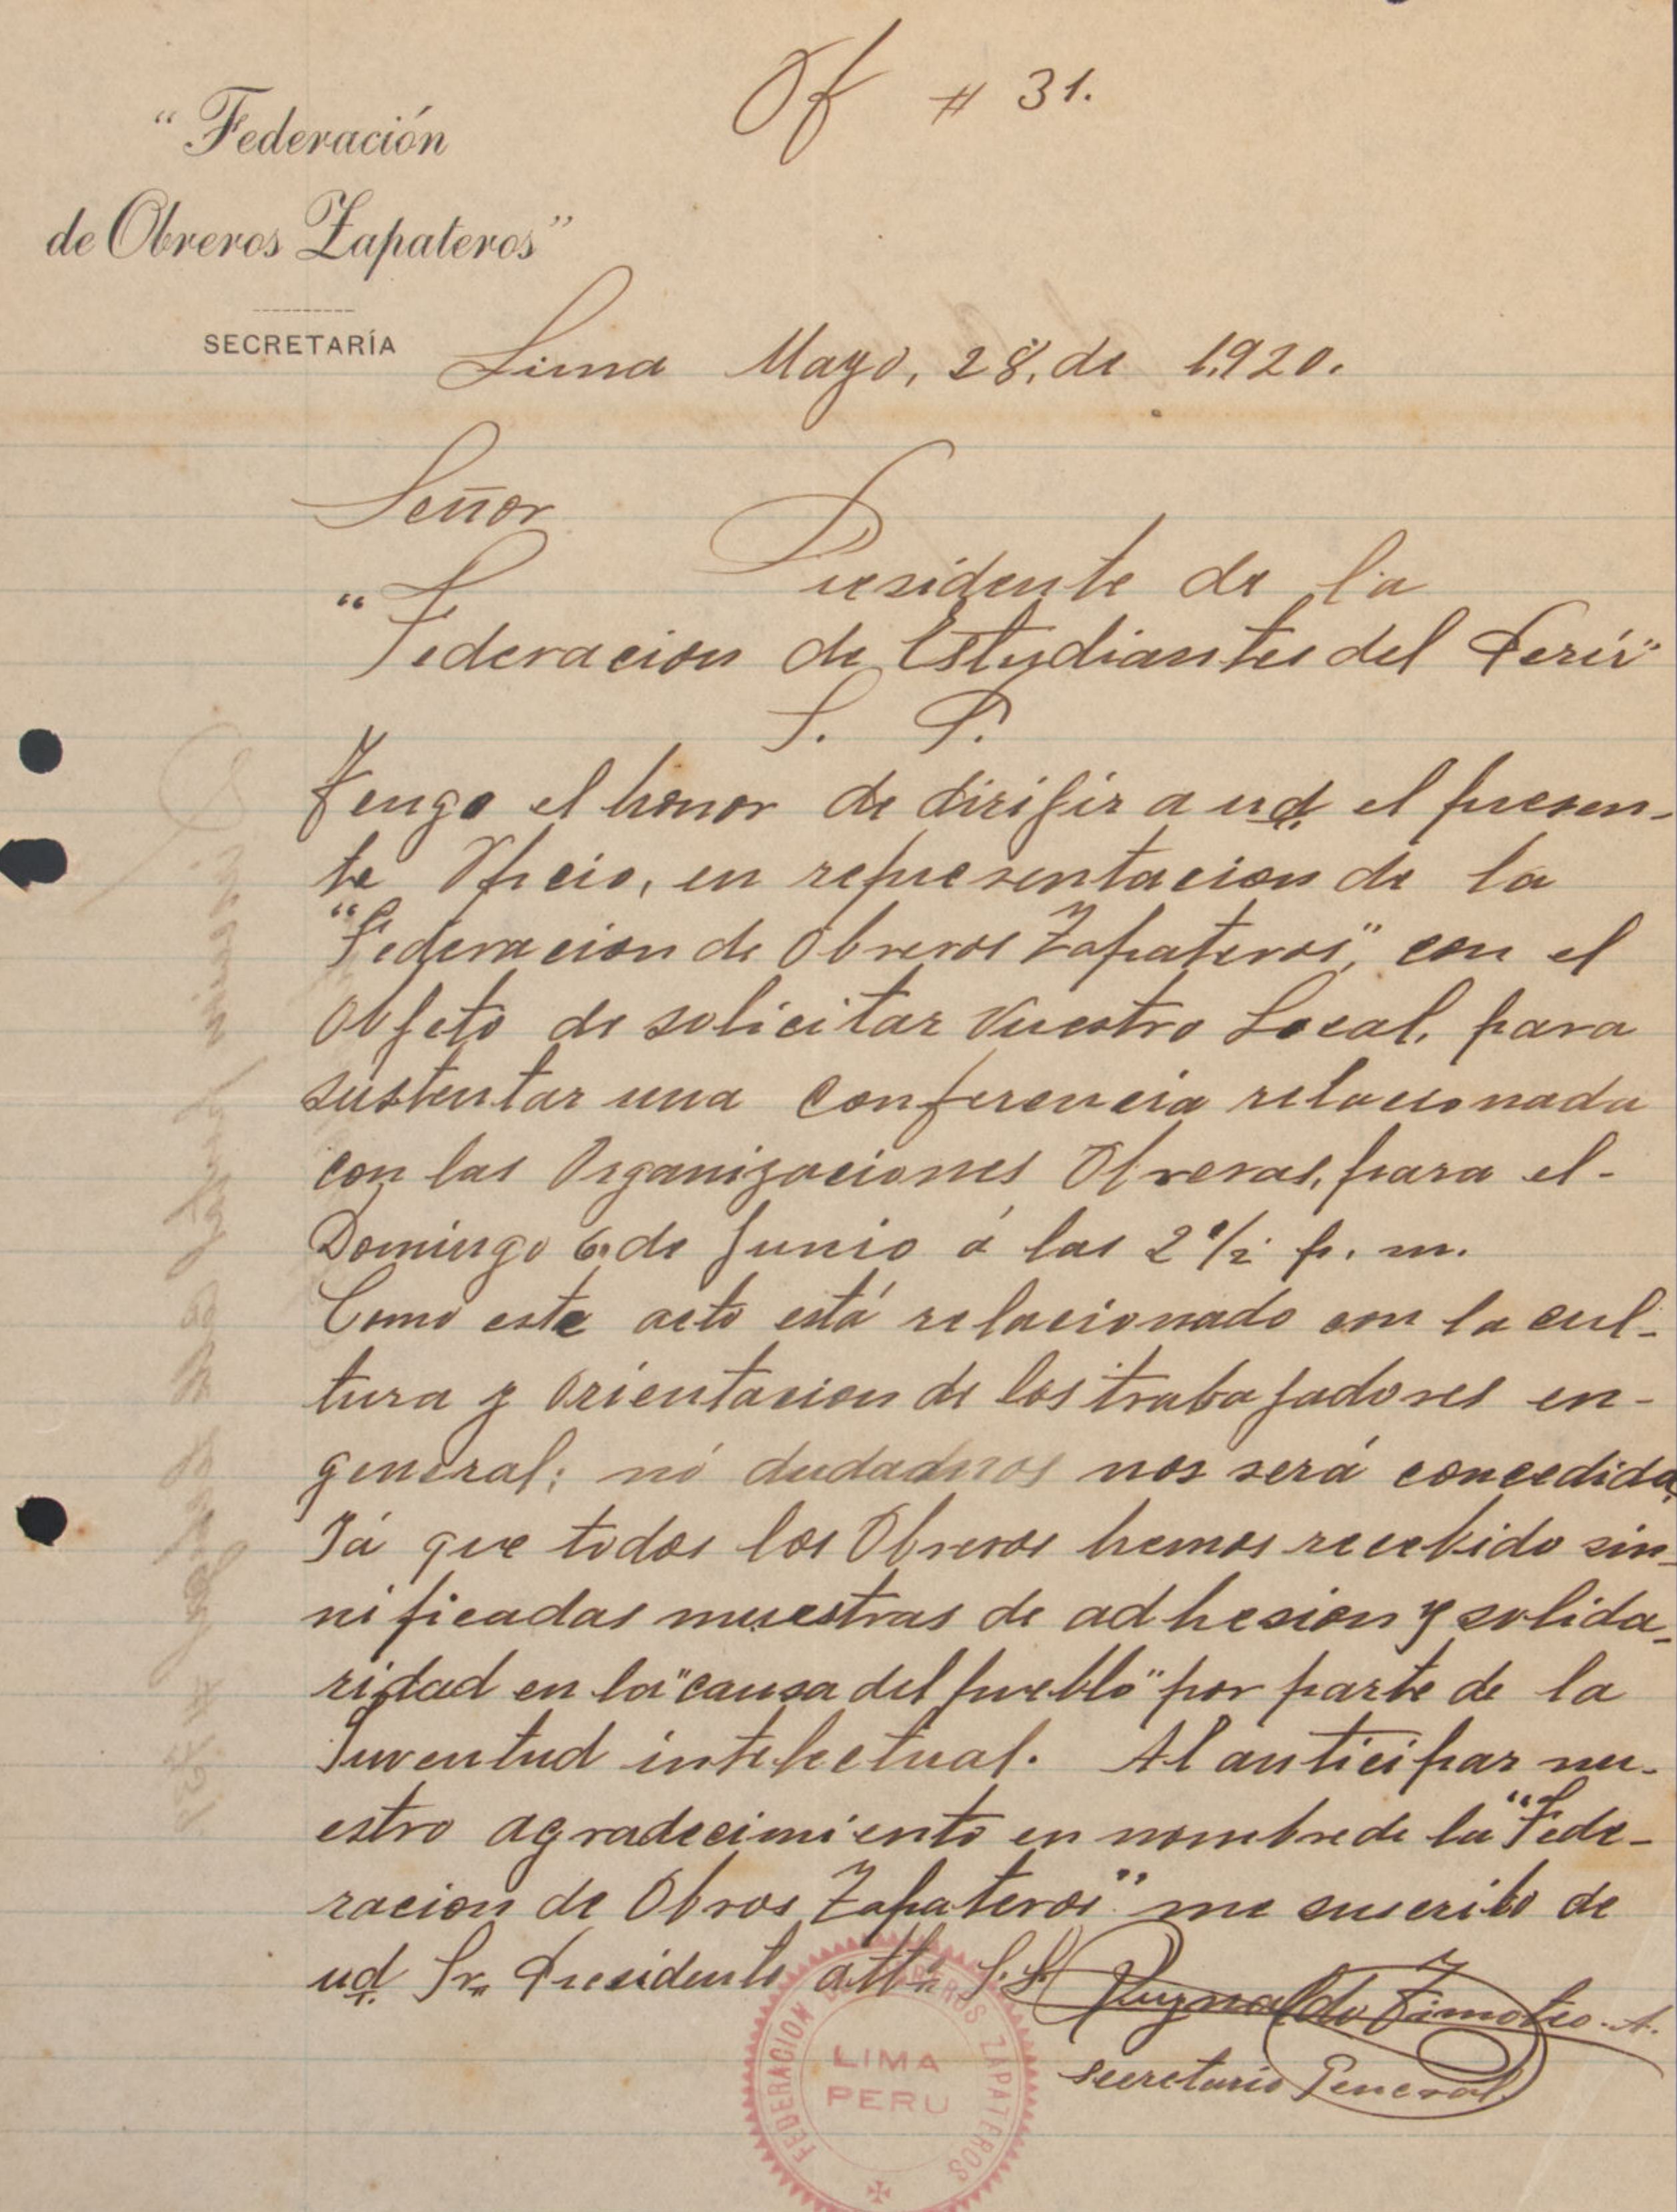 Of # 31.
"Federación
de Obreros Zapateros"
SECRETARÍA
Lima Mayo, 28, de 1920.
Señor
Presidente de la
"Federacion de Estudiantes del Perú"
S. P.
Tengo el honor de dirijir a ud. el presen-
te Oficio, en representacion de la
"Federacion de Obreros Zapateros", con el
Objeto de solicitar Vuestro Local, para
sustentar una conferencia relacionada
con las Organizaciones Obreras, para el-
Domingo 6, de Junio á las 2 1/2 p. m.
Como este acto está relacionado con la cul-
tura y Orientacion de los trabajadores en-
general; nó dudadmos nos será concedida,
Yá que todos los Obreros hemos recebido sin-
nificadas muestras de adhesion y solida-
ridad en la "causa del pueblo" por parte de la
Juventud intelectual. Al anticipar nu-
estro agradecimiento en nombre de la "Fede-
racion de Obros Zapateros" me suscribo de
ud. Sr. Presidente atto S. S.
Reynaldo Timoteo. A.
secretario General
FEDERACION DE OBREROS ZAPATEROS
LIMA
PERU